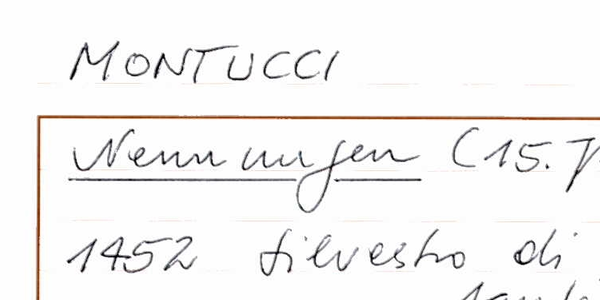 MONTUCCI
Nennungen (15.
1452 Silvestro di